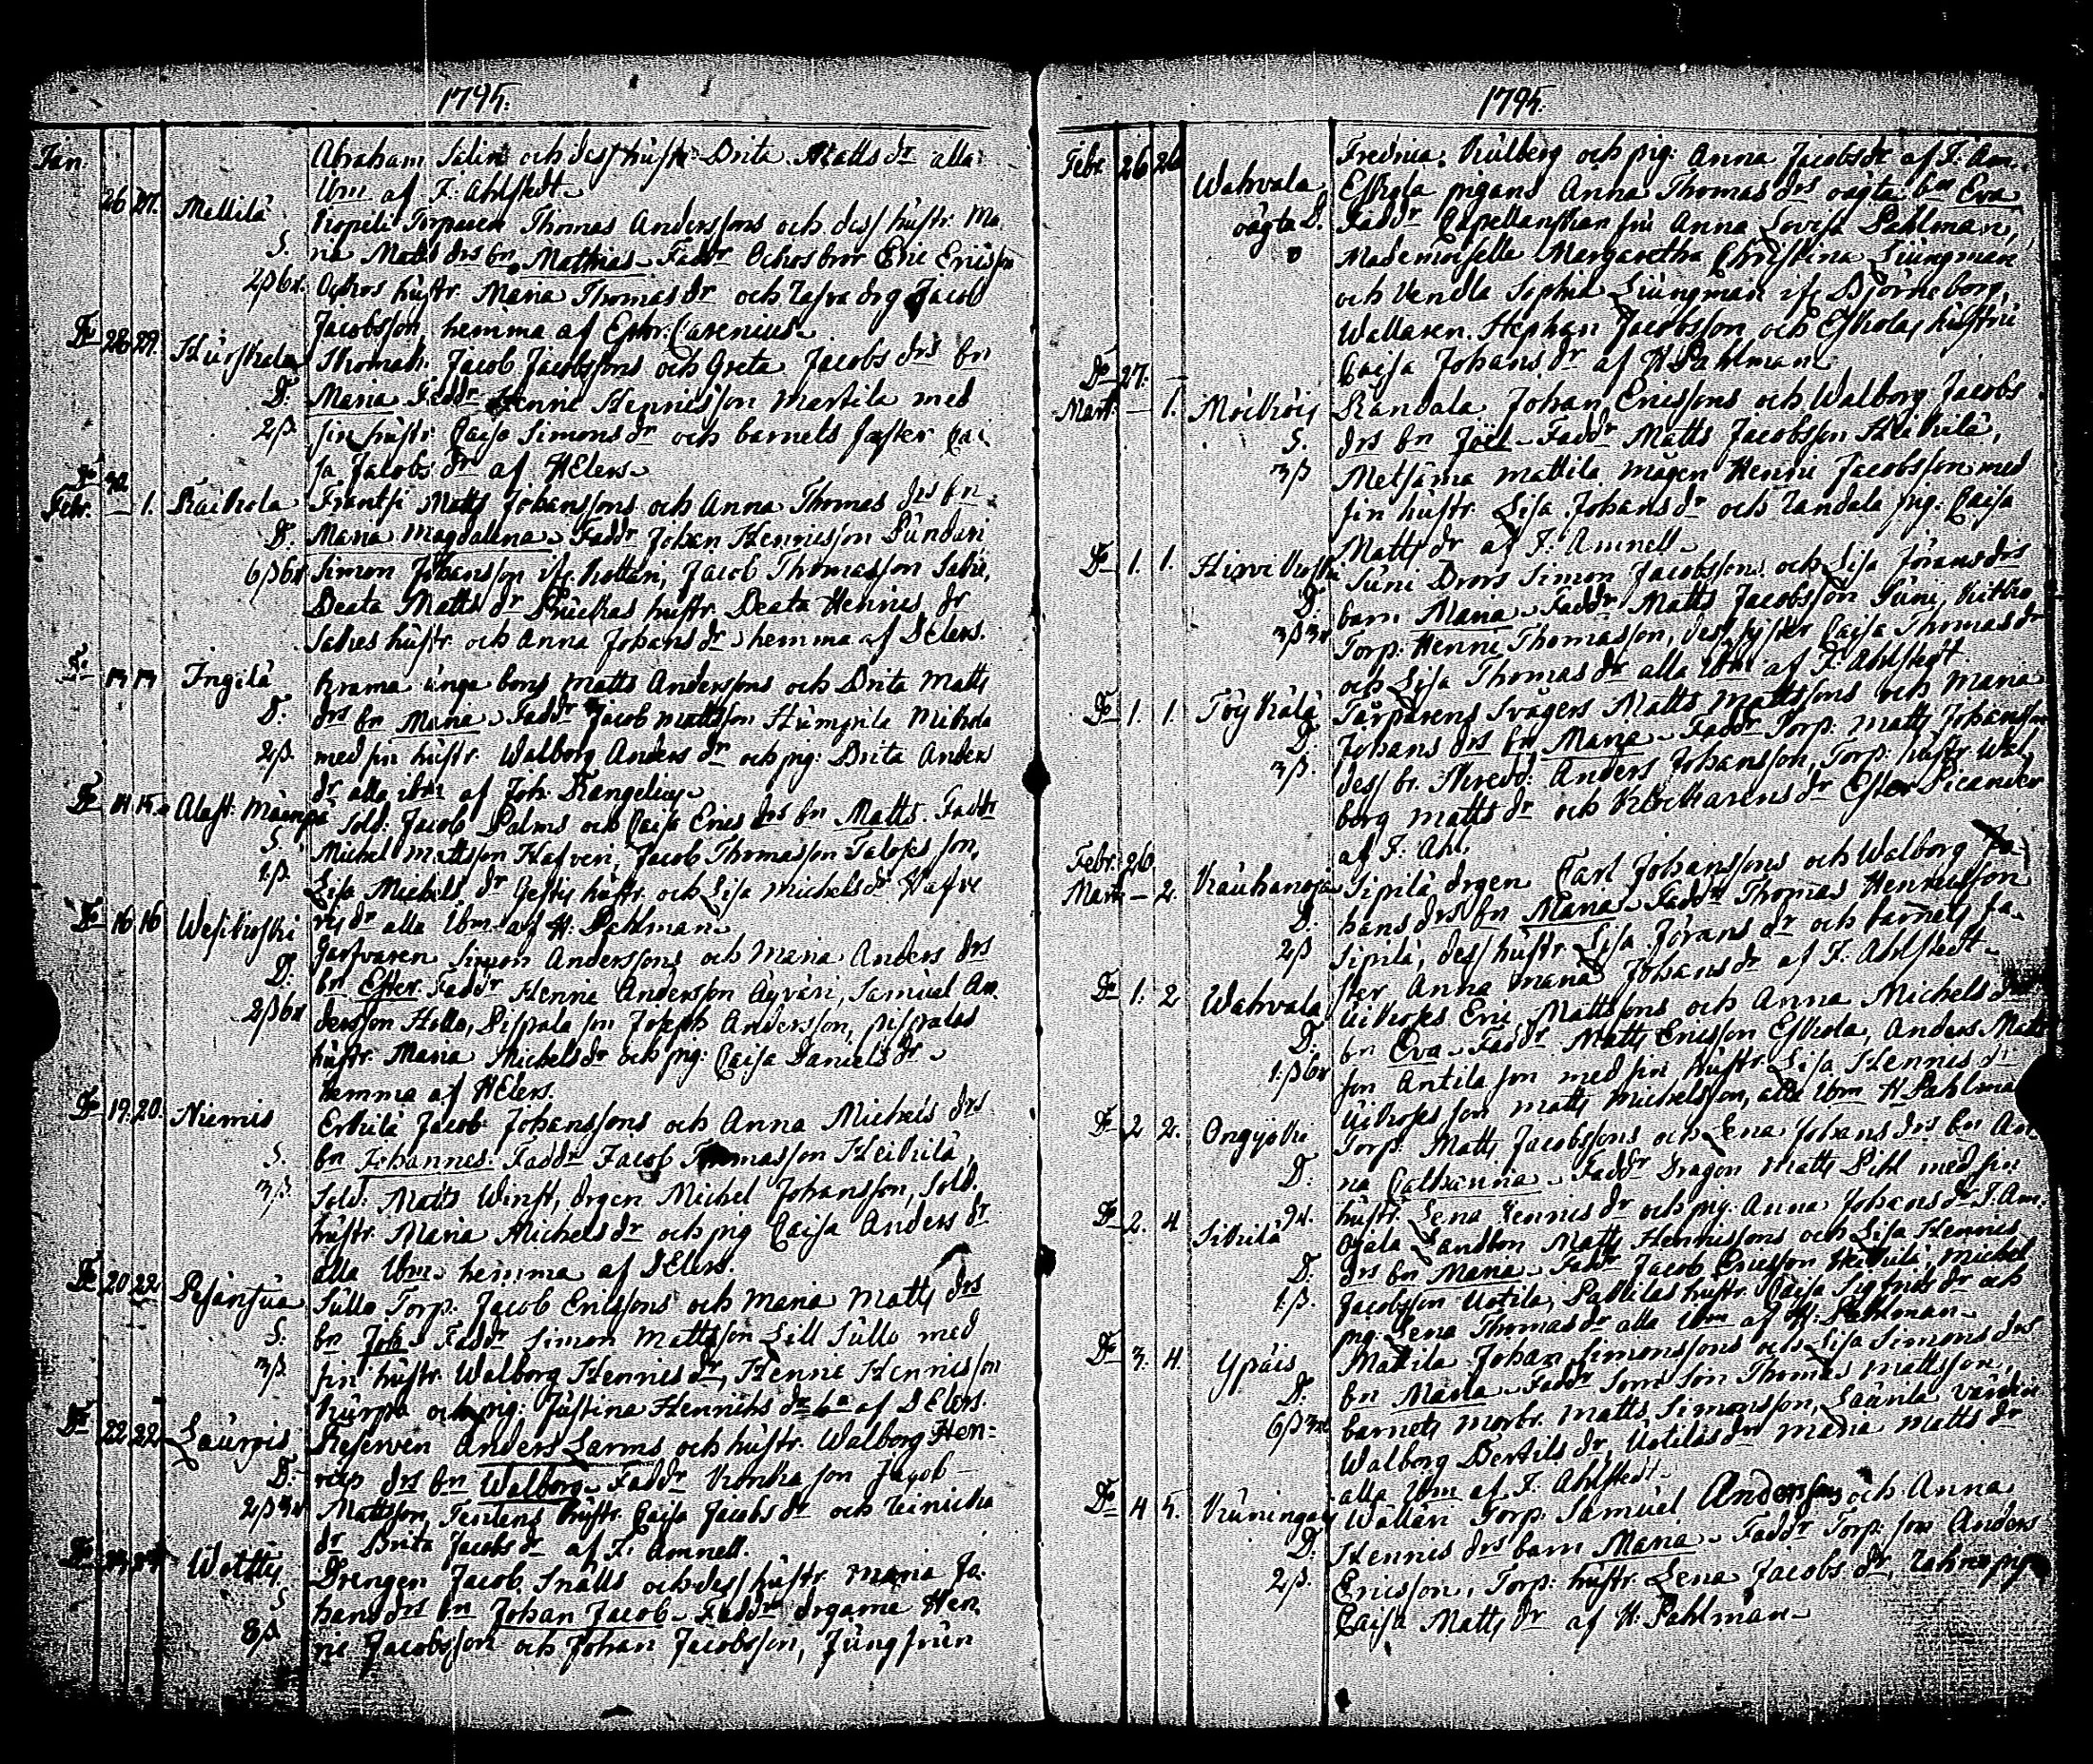 1795.
Jan: Abraham Salin och dess hustr. Brita Matts dr alla
26 27. Mellilä ibm af F: Ahlstedt
Torparen Thomas Anderssons och dess hustr. Ma,
S. ria Matts drs bn Mathias. Faddr Ochos bror Eric Ericsson
2ß6r. Ochos hustr. Maria Thomas dr och drg Jacob
Jacobsson hemma af Carenius
Do 28 29. Thomas. Jacob Jacobssons och Greta Jacobs drs bn
D. Maria Faddr Henric Henricsson Martila med
2ß. sin hustr. Caisa Simons dr och barnets syster Cai
sa Jacobs dr af HElers
Do 30
Febr. — 1. Raikola Frantsi Matts Johanssons och Anna Thomas drs bn
D. Maria Magdalena. Faddr Johan Henricsson Pundari
6ß6r Simon Johansson ifr. Kottari, Jacob Thomasson
Beata Matts dr hustr. Beata Hennis dr
hustr. och Anna Johans dr hemma af DElers.
Ingilä Krama unga bons Matts Anderssons och Brita Matts
D. drs bn Maria. Faddr Jacob Mattsson Humpila
2ß. med sin hustr. Walborg Anders dr och pig: Brita Anders
dr alla ibm af Joh: Rangelius
Do 14 15. Alast: Mäenpä Sold: Jacob Palms och Caisa Erics drs bn Matts. Faddr
S. Michel Mattsson Hafveri, Jacob Thomasson son,
1ß. Lisa Michels dr hustr. och Lisa Michels dr Hafve
Do 16 16 ris dr alla ibm af H: Pahlman
Garfvaren Simon Anderssons och Maria Anders drs
D. bn Ester. Faddr Henric Andersson Äyväri, Samuel An
2ß6r dersson Hollo, Pispala son Joseph Andersson, Pispalas
hustr. Maria Michels dr och pig: Caisa Daniels dr
hemma af HElers.
Do 19. 20. Niemis Erkilä Jacob Johanssons och Anna Michels drs
S. bn Johannes. Faddr Jacob Thomasson Heikilä,
3ß. Sold: Matts Winst, drgen Michel Johansson, Sold.
hustr. Maria Michels dr och pig Caisa Anders dr
alla ibm hemma af DElers.
Do 20 22 Pesänsua Sullo Torp: Jacob Ericssons och Maria Matts drs
S. bn Job. Faddr Simon Mattsson Lill Sullo med
3ß. sin hustr. Walborg Hennis dr, Henric Hennisson
Hurpa och pig: Justina Henrichs dr af DElers.
Do 22 22 Laurois Reserven Anders Larms och hustr. Walborg Hen=
D. rics drs bn Walborg. Faddr son Jacob
2ß Mattsson, hustr. Caisa Jacobs dr och
dr Brita Jacobs dr af F: Amnell.
Do Drengen Jacob Snälls och dess hustr. Maria Jo
S hans drs bn Johan Jacob. Faddr drgarne Hen,
8ß ric Jacobsson och Johan Jacobsson, Jungfrun
1795.
Febr 26 26 Fredrica Kulberg och pig: Anna Jacobs dr af F: Am
Wahvala Eskola pigans Anna Thomas drs oägta bn Eva
oägta D. Faddr Capellanskan fru Anna Lovisa Pahlman,
Mademoiselle Margaretha Christina Liungman
och Vendla Sophia Liungman ifr. Björneborg,
Wallaren Stephan Jacobsson och Eskolas hustru
Do 27. — Caisa Johans dr af H Pahlman
Mart. — 1. Randala Johan Ericssons och Walborg Jacobs
S. drs bn Joel. Faddr Matts Jacobsson Heikilä,
3ß Metsäma Mattila mågen Henric Jacobsson med
sin hustr. Lisa Johans dr och Randala pig. Caisa
Matts dr af F: Amnell.
Do 1. 1. Hirvikoski Suni Brors Simon Jacobssons och Lisa Jörans drs
D. barn Maria. Faddr Matts Jacobsson Suni,
3ß3r Torp: Henric Thomasson, dess syster Caisa Thomas dr
och Lisa Thomas dr alla ibm af F: Ahlstedt.
Do 1. 1. Töykälä Torparens Svågers Matts Mattssons och Maria
D. Johans drs bn Maria. Faddr Torp: Matts Johansson
3ß. dess br. Skredd: Anders Johansson, Torp: hustr. Wal,
borg Matts dr och Klockarens dr Ester Sicander
af F: Ahl.
Febr. 26.
Mart. — 2. Kauhanoja Sipilä drgen Carl Johanssons och Walborg Jo,
D. hans drs bn Maria. Faddr Thomas Henricsson
2ß Sipilä, dess hustr. Lisa Jörans dr och barnets fa,
ster Anna Maria Johans dr af F. Ahlstedt
Do 1. 2 Wahvala Eric Mattssons och Anna Michels drs
D. bn Eva. Faddr Matts Ericsson Eskola, Anders Matts
1.ß6r son Antila son med sin hustr. Lisa Hennis dr
son Matts Michelsson, alla ibm H Pahlman
Do 2 2. Torp: Matts Jacobssons och Lena Johans drs bn An
D. na Catharina. Faddr Dragon Matts Pihl med sin
9r. hustr. Lena Hennis dr och pig. Anna Johans dr F. Am.
Do 2. 4 Ojala Landbon Matts Henricssons och Lisa Hennis
D. drs bn Maria. Faddr Jacob Ericsson Heikilä, Michel
1.ß. Jacobsson Uotila, Pakilas hustr. Caisa Sigfrids dr och
pig: Lena Thomas dr alla ibm af H: Pahlman
Do 3. 4. Ypäis Mattila Johan Simonssons och Lisa Simons drs
D. bn Maria. Faddr Son Thomas Mattsson,
6ß barnets morbr. Matts Simonsson, Launla
Walborg Bertils dr, Uotilas dr Maria Matts dr
alla ibm af F: Ahlstedt
Do 4 5. Torp: Samuel Anderssons och Anna
D. Hennis drs barn Maria. Faddr Torp: son Anders
2ß. Ericsson, Torp: hustr. Lena Jacobs dr, pig
Caisa Matts dr af H: Pahlman